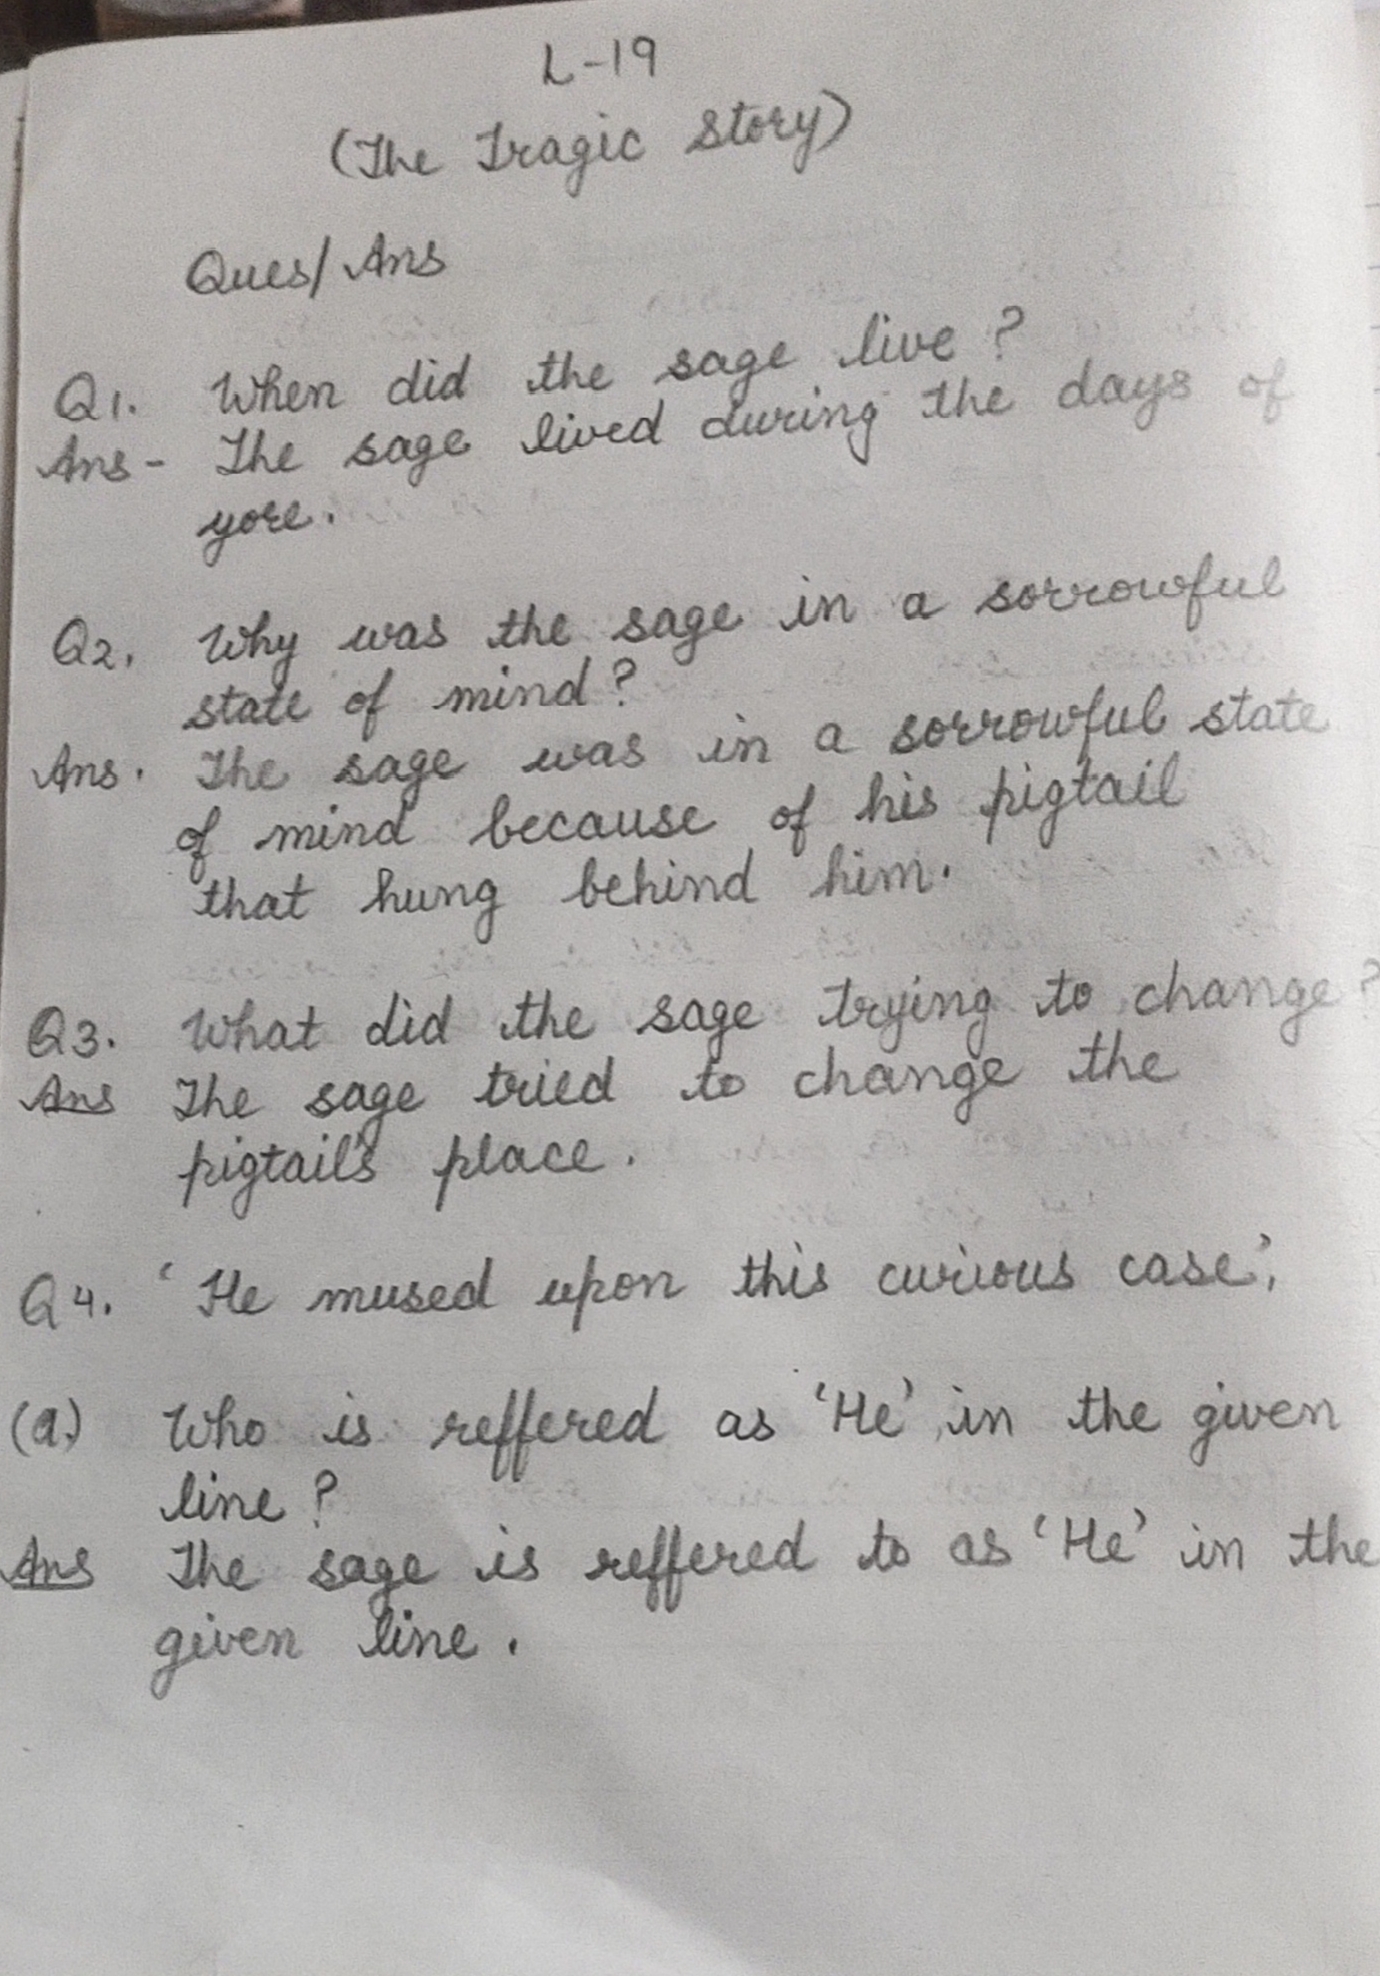 L-19
(The Tragic Story)
Ques/Ans
Q1. When did the sage live?
Ans- The sage lived during the days of
yore.
Q2. Why was the sage in a sorrowful
state of mind?
Ans. The sage was in a sorrowful state
of mind because of his pigtail
that hung behind him.
Q3. What did the sage trying to change?
Ans The sage tried to change the
pigtail's place.
Q4. 'He mused upon this curious case',
(a) Who is reffered as 'He' in the given
line?
Ans The sage is reffered to as 'He' in the
given line.